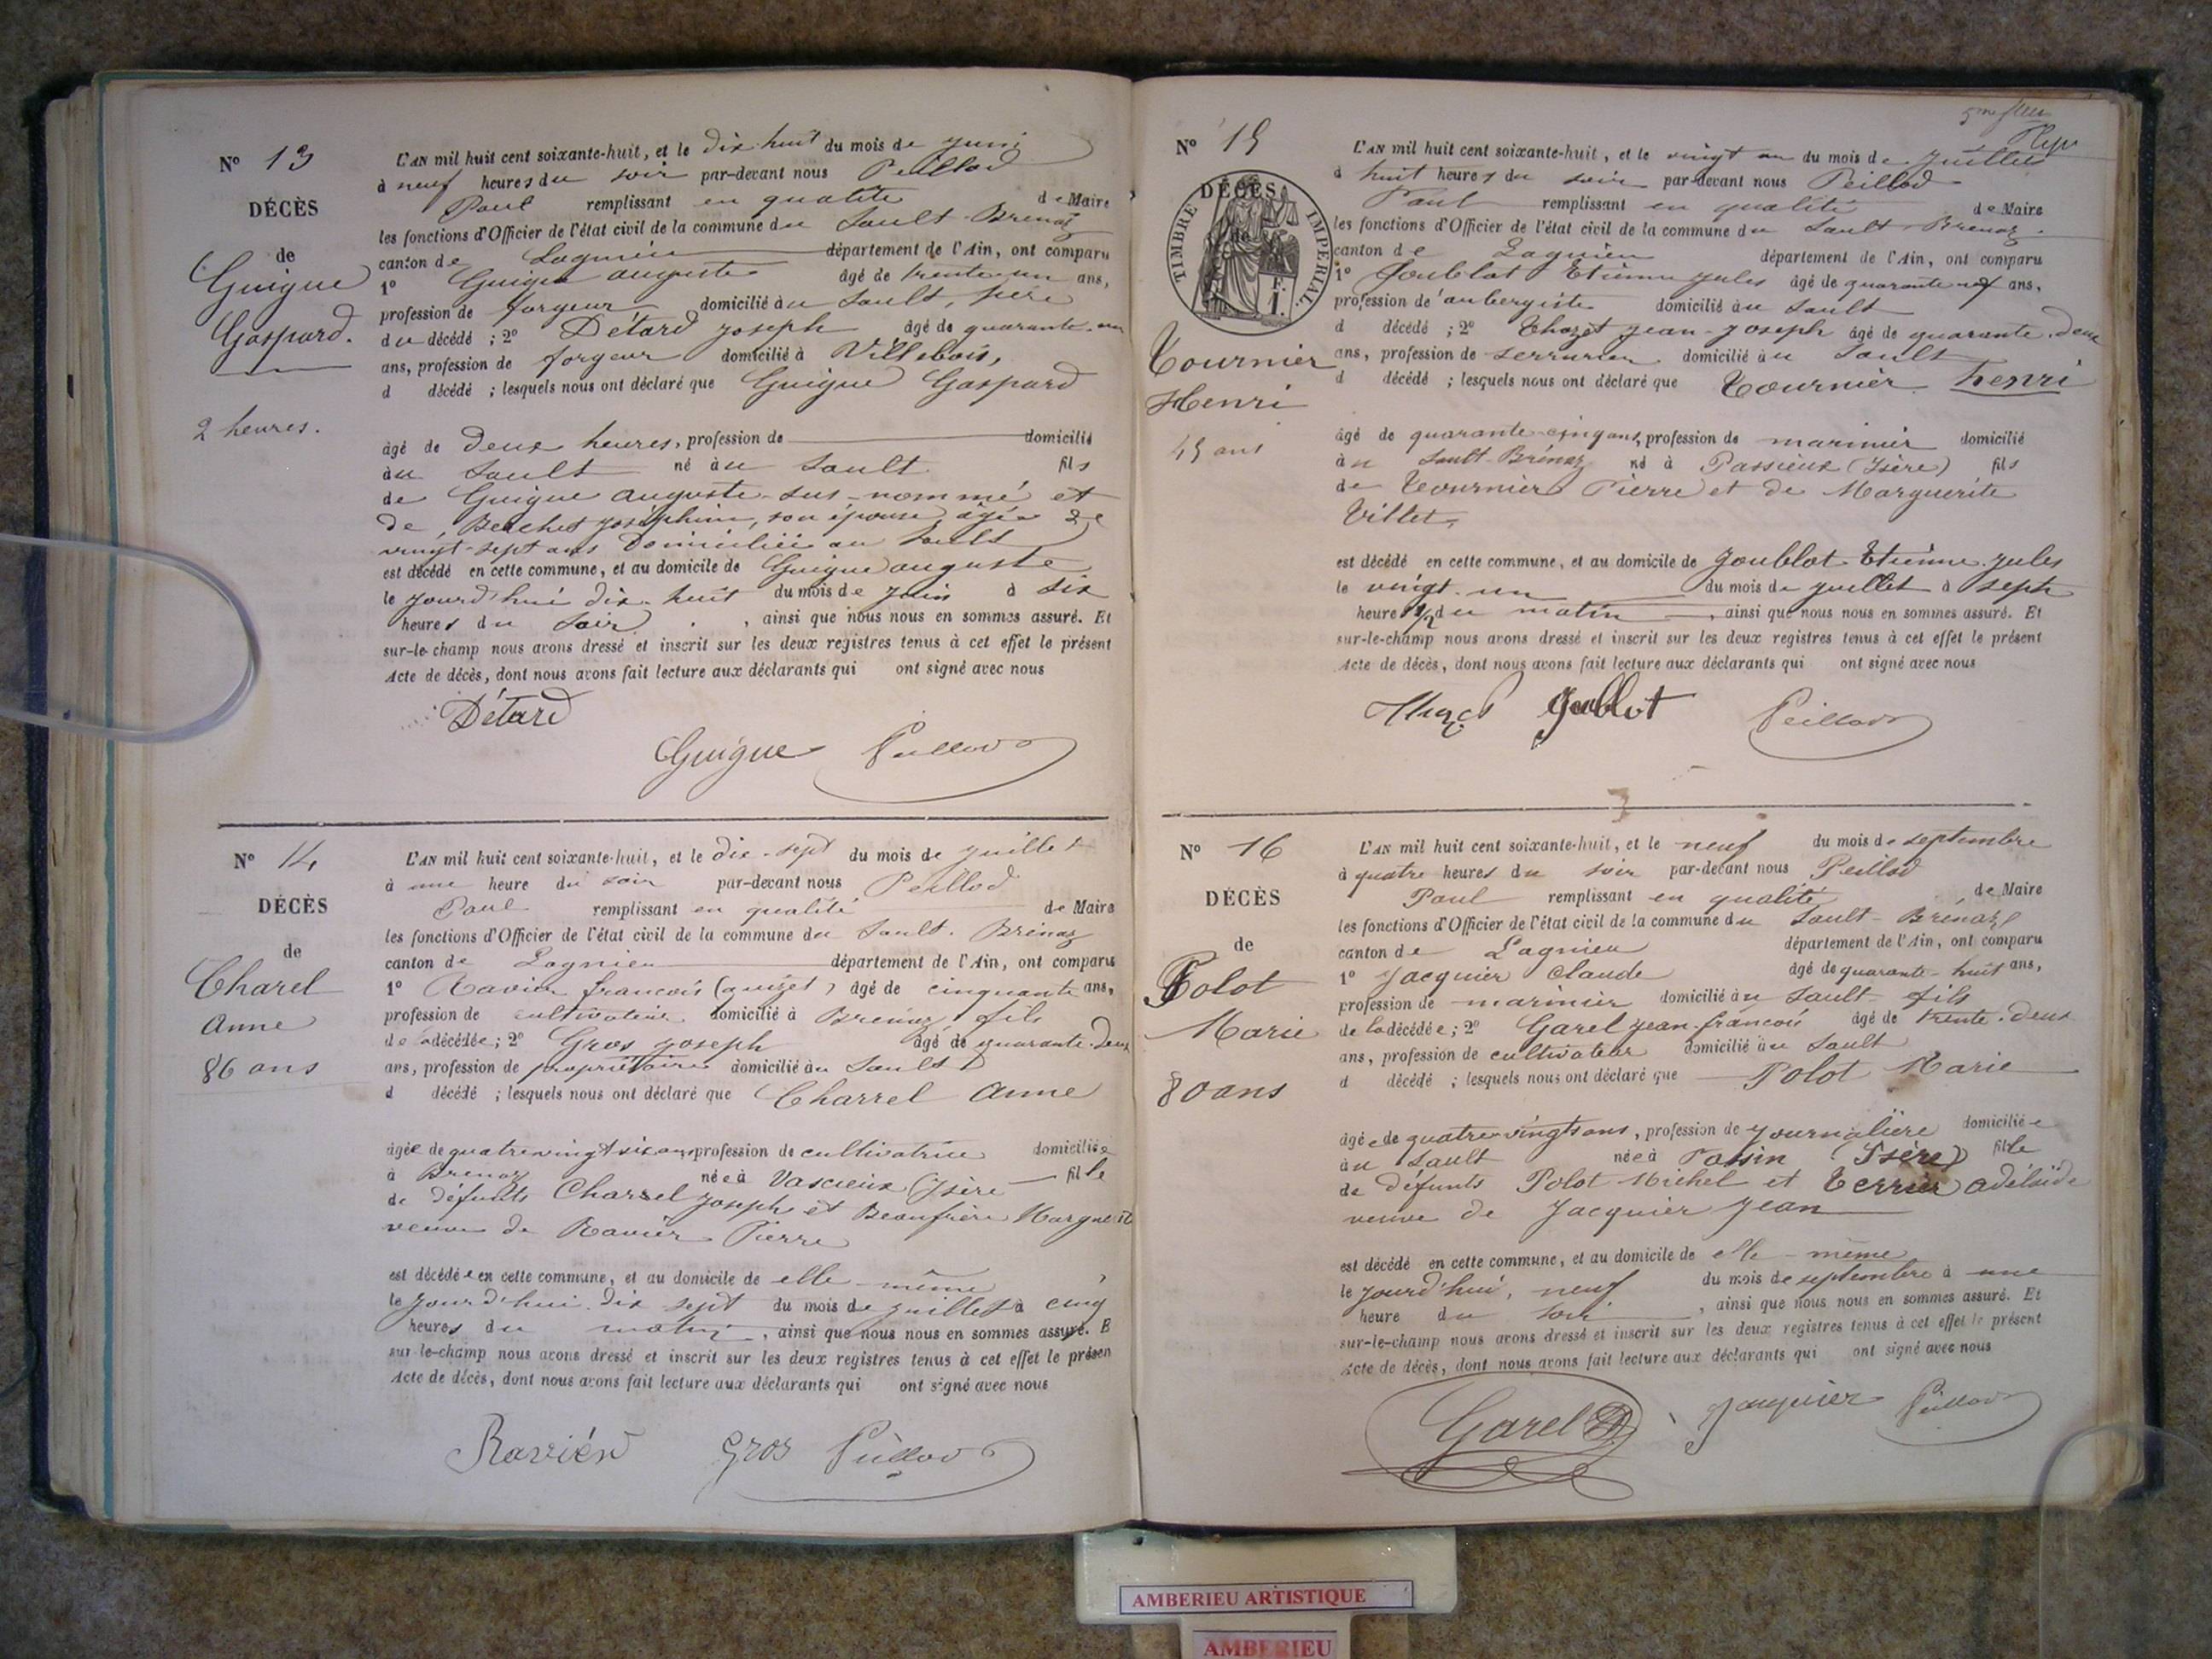 N° 13
DÉCÈS
de
Guigue
Gaspard.
2 heures.
L'AN mil huit cent soixante-huit, et le dix huit du mois de juin
à neuf heures du soir par-devant nous Peillod
Paul remplissant en qualité de Maire
les fonctions d'Officier de l'état civil de la commune du Sault-Brenaz
canton de Lagnieu département de l'Ain, ont comparu
1° Guigue auguste âgé de trente-un ans,
profession de forgeur domicilié au Sault, père
du décédé ; 2° Détard joseph âgé de quarante-un
ans, profession de forgeur domicilié à Villebois,
d décédé ; lesquels nous ont déclaré que Guigue Gaspard
âgé de deux heures, profession de domicilié
au Sault né au Sault fils
de Guigue auguste sus-nommé et
de joséphine, son épouse âgée de
vingt-sept ans domiciliée au Sault
est décédé en cette commune, et au domicile de Guigue auguste
le jourd'hui dix-huit du mois de juin à six
heures du soir, ainsi que nous nous en sommes assuré. Et
sur-le-champ nous avons dressé et inscrit sur les deux registres tenus à cet effet le présent
Acte de décès, dont nous avons fait lecture aux déclarants qui ont signé avec nous
Détard
Guigue Peillod
N° 14
DÉCÈS
de
Charel
Anne
86 ans
L'AN mil huit cent soixante-huit, et le dix-sept du mois de juillet
à une heure du soir par-devant nous Peillod
Paul remplissant en qualité de Maire
les fonctions d'Officier de l'état civil de la commune du Sault-Brénaz
canton de Lagnieu département de l'Ain, ont comparu
1° Ravier francois (quizet) âgé de cinquante ans,
profession de cultivateur domicilié à Brenaz fils
de la décédée ; 2° Gros joseph âgé de quarante-deux
ans, profession de propriétaire domicilié au Sault
d décédé ; lesquels nous ont déclaré que Charrel Anne
âgée de quatrevingt six ans profession de cultivatrice domiciliée
à Brenaz née à Vascieux (Isère fille
de défunts Charrel joseph et Beaufrère Marguerite
veuve de Ravier Pierre
est décédée en cette commune, et au domicile de elle-même
le jourd'hui dix sept du mois de juillet à cinq
heures du matin, ainsi que nous nous en sommes assuré. E
sur-le-champ nous avons dressé et inscrit sur les deux registres tenus à cet effet le présen
Acte de décès, dont nous avons fait lecture aux déclarants qui ont signé avec nous
Ravier Gros Peillod
5me
N° 15
DÉCÈS
de
TIMBRE IMPÉRIAL.
1 F.
Tournier
Henri
45 ans
L'AN mil huit cent soixante-huit, et le vingt un du mois de juillet
à huit heures du soir par-devant nous Peillod
Paul remplissant en qualité de Maire
les fonctions d'Officier de l'état civil de la commune du Sault-Brenaz
canton de Lagnieu département de l'Ain, ont comparu
1° Joublot Etienne jules âgé de quarante neuf ans,
profession d'aubergiste domicilié au Sault
d décédé ; 2° Thozet jean-joseph âgé de quarante-deux
ans, profession de serrurier domicilié au Sault
d décédé ; lesquels nous ont déclaré que Tournier henri
âgé de quarante-cinq ans, profession de marinier domicilié
au Sault-Brénaz né à Passieux (Isère) fils
de Tournier Pierre et de Marguerite
Villet,
est décédé en cette commune, et au domicile de Joublot Etienne jules
le vingt-un du mois de juillet à sept
heures 1/2 du matin, ainsi que nous nous en sommes assuré. Et
sur-le-champ nous avons dressé et inscrit sur les deux registres tenus à cet effet le présent
Acte de décès, dont nous avons fait lecture aux déclarants qui ont signé avec nous
Joublot Peillod
N° 16
DÉCÈS
de
Polot
Marie
80 ans
L'AN mil huit cent soixante-huit, et le neuf du mois de septembre
à quatre heures du soir par-devant nous Peillod
Paul remplissant en qualité de Maire
les fonctions d'Officier de l'état civil de la commune du Sault-Brénaz
canton de Lagnieu département de l'Ain, ont comparu
1° Jacquier Claude âgé de quarante-huit ans,
profession de marinier domicilié au Sault fils
de la décédée ; 2° Garel jean-francois âgé de trente-deux
ans, profession de cultivateur domicilié au Sault
d décédé ; lesquels nous ont déclaré que Polot Marie
âgée de quatrevingts ans, profession de journalière domiciliée
au Sault née à Passin (Isère) fille
de défunts Polot Michel et Terrier adélaïde
veuve de Jacquier Jean
est décédé en cette commune, et au domicile de elle-même
le jourd'hui, neuf du mois de septembre à une
heure du soir, ainsi que nous nous en sommes assuré. Et
sur-le-champ nous avons dressé et inscrit sur les deux registres tenus à cet effet le présent
Acte de décès, dont nous avons fait lecture aux déclarants qui ont signé avec nous
Garel Jacquier Peillod
AMBERIEU ARTISTIQUE
AMBERIEU